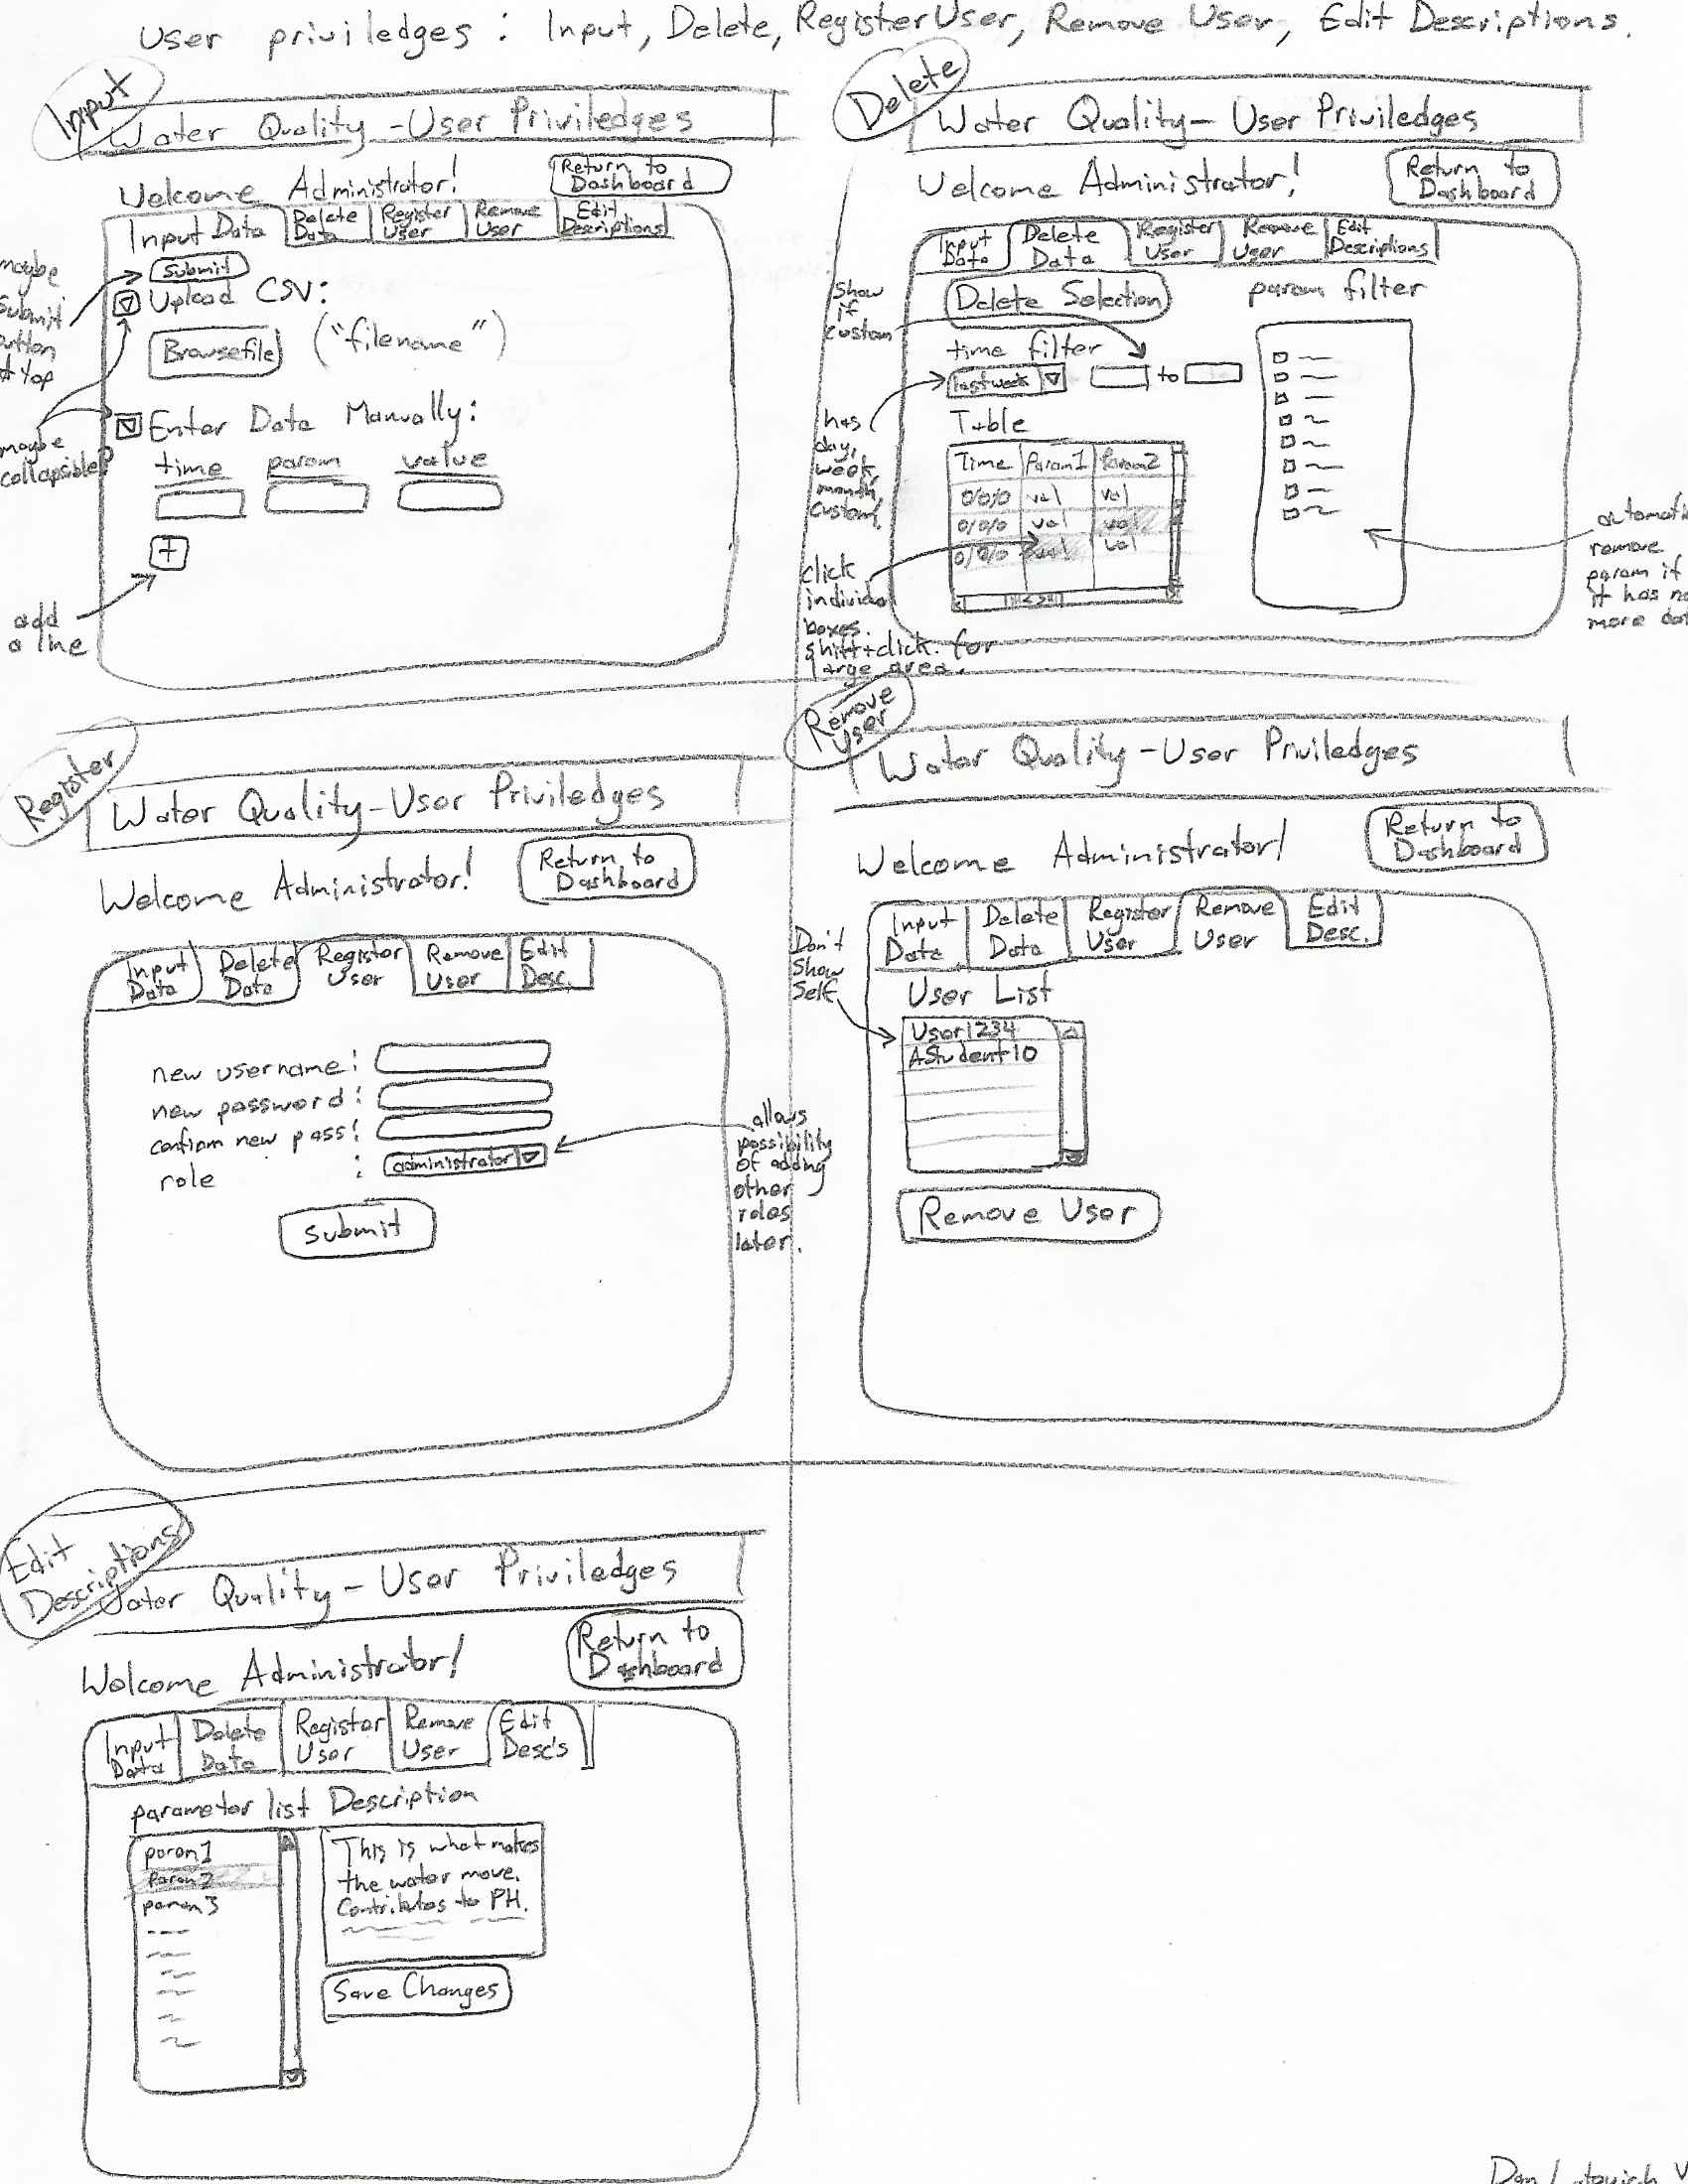 User priviledges : Input, Delete, Register User, Remove User, Edit Descriptions.
Input
Water Quality - User Priviledges
Welcome Administrator!
Return to
Dashboard
Input Data
Delete
Data
Register
User
Remove
User
Edit
Descriptions
submit
Upload CSV:
Browse file ("filename")
Enter Data Manually:
time param value
+
maybe
submit
button
at top
maybe
collapsible?
add
a line
Delete
Water Quality - User Priviledges
Welcome Administrator!
Return to
Dashboard
Input
Data
Delete
Data
Register
User
Remove
User
Edit
Descriptions
Delete Selection
param filter
time filter
last week
to
Table
Time Param1 Param2
0/0/0 val val
0/0/0 val val
0/0/0 val val
show
if
custom
has
day,
week,
month,
custom,
click
individual
boxes.
shift+click for
large area.
remove
param if
it has no
more
Register
Water Quality - User Priviledges
Welcome Administrator!
Return to
Dashboard
Input
Data
Delete
Data
Register
User
Remove
User
Edit
Desc.
new username:
new password:
confirm new pass:
role : administrator
submit
allows
possibility
of adding
other
roles
later.
Remove
User
Water Quality - User Priviledges
Welcome Administrator!
Return to
Dashboard
Input
Data
Delete
Data
Register
User
Remove
User
Edit
Desc.
Don't
show
self
User List
User1234
AStudent10
Remove User
Edit
Descriptions
Water Quality - User Priviledges
Welcome Administrator!
Return to
Dashboard
Input
Data
Delete
Data
Register
User
Remove
User
Edit
Desc's
parameter list Description
param1
param2
param3
This is what makes
the water move.
Contributes to PH.
Save Changes
Dan